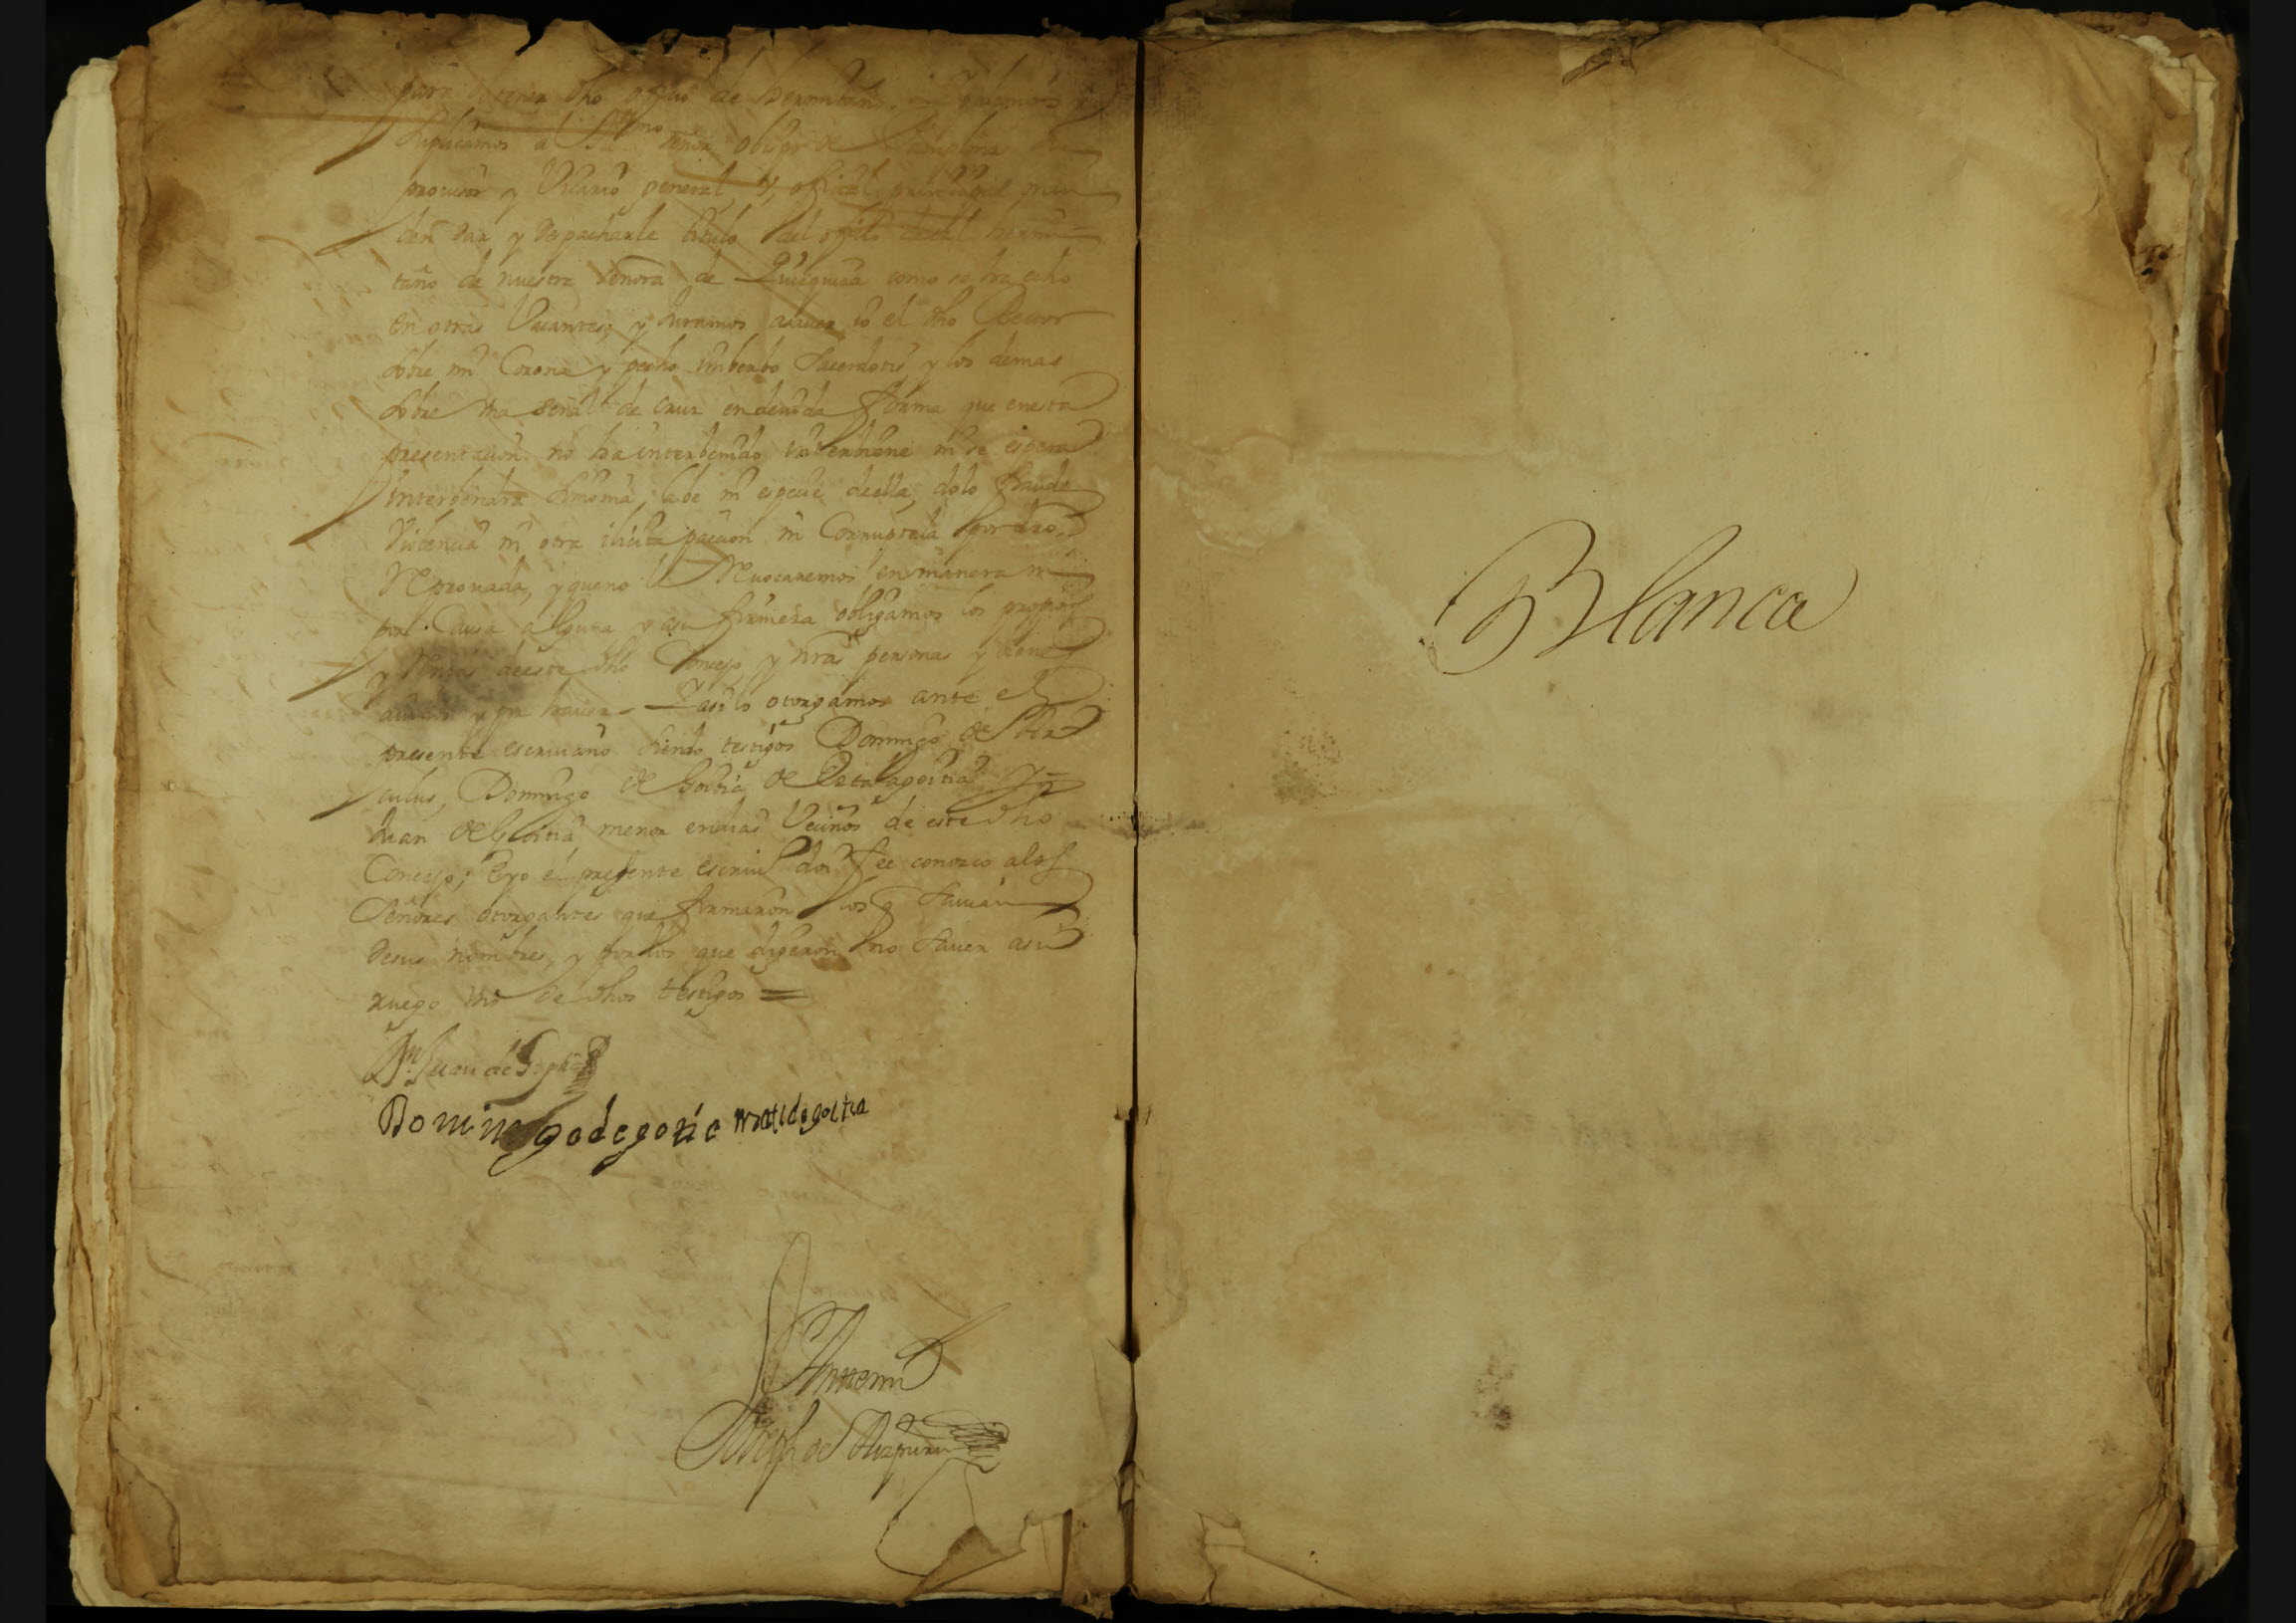 para exercer dho officio de hermitaño. y pedimos y
suplicamos al Ill.mo señor obispo de Pamplona su
provisor y Vicario general, y, oficial principal man
den dar y despacharle titulo del officio de tal hermi
taño de nuestra señora de Quizquiza como se ha echo
en otras Vacantes; y Juramos asaver io el dho Rector
sobre mi Corona y pecho in berbo sacerdotis y los demas
sobre una señal de cruz en devida forma que en esta
presentacion no ha interbenido interbiene ni se espera
interbendra simonia, labe ni especie de ella, dolo fraude
Violencia ni otra ilicita paccion ni Corruptela por dro
Reprovada, y que no la Revocaremos en manera ni
por Causa alguna y a su firmeza obligamos los propios
y Rentas de este dho Concejo y nras personas y bienes
avidos y por haver = Y asi lo otorgamos ante el
presente escrivano siendo testigos Domingo de
Domingo de Goitia de y
Juan de Goitia menor en dias Vecinos de este dho
Concejo; E yo el presente escriv.o doi fee conozco a los
señores otorgantes que firmaron los q savian
de sus nombres, y por los que digeron no saver a su
ruego uno de dhos testigos =
Juan de
Domingo de goitia mati de goitia
Ante mi
Joseph de Aizpuru
Blanca